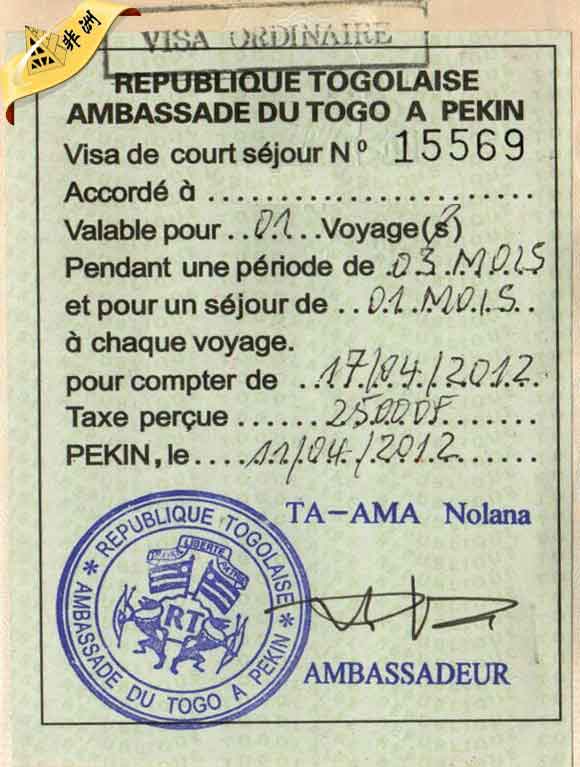 非洲
VISA ORDINAIRE
REPUBLIQUE TOGOLAISE
AMBASSADE DU TOGO A PEKIN
Visa de court séjour Nº 15569
Accordé à ........................
Valable pour ..01...Voyage(s)
Pendant une période de .03.MOIS
et pour un séjour de ..01.MOIS.
à chaque voyage.
pour compter de ..17/04/2012.
Taxe perçue ......25000F......
PEKIN, le ....11/04/2012......
TA-AMA Nolana
REPUBLIQUE TOGOLAISE
LIBERTE
RT
* AMBASSADE DU TOGO A PEKIN *
AMBASSADEUR